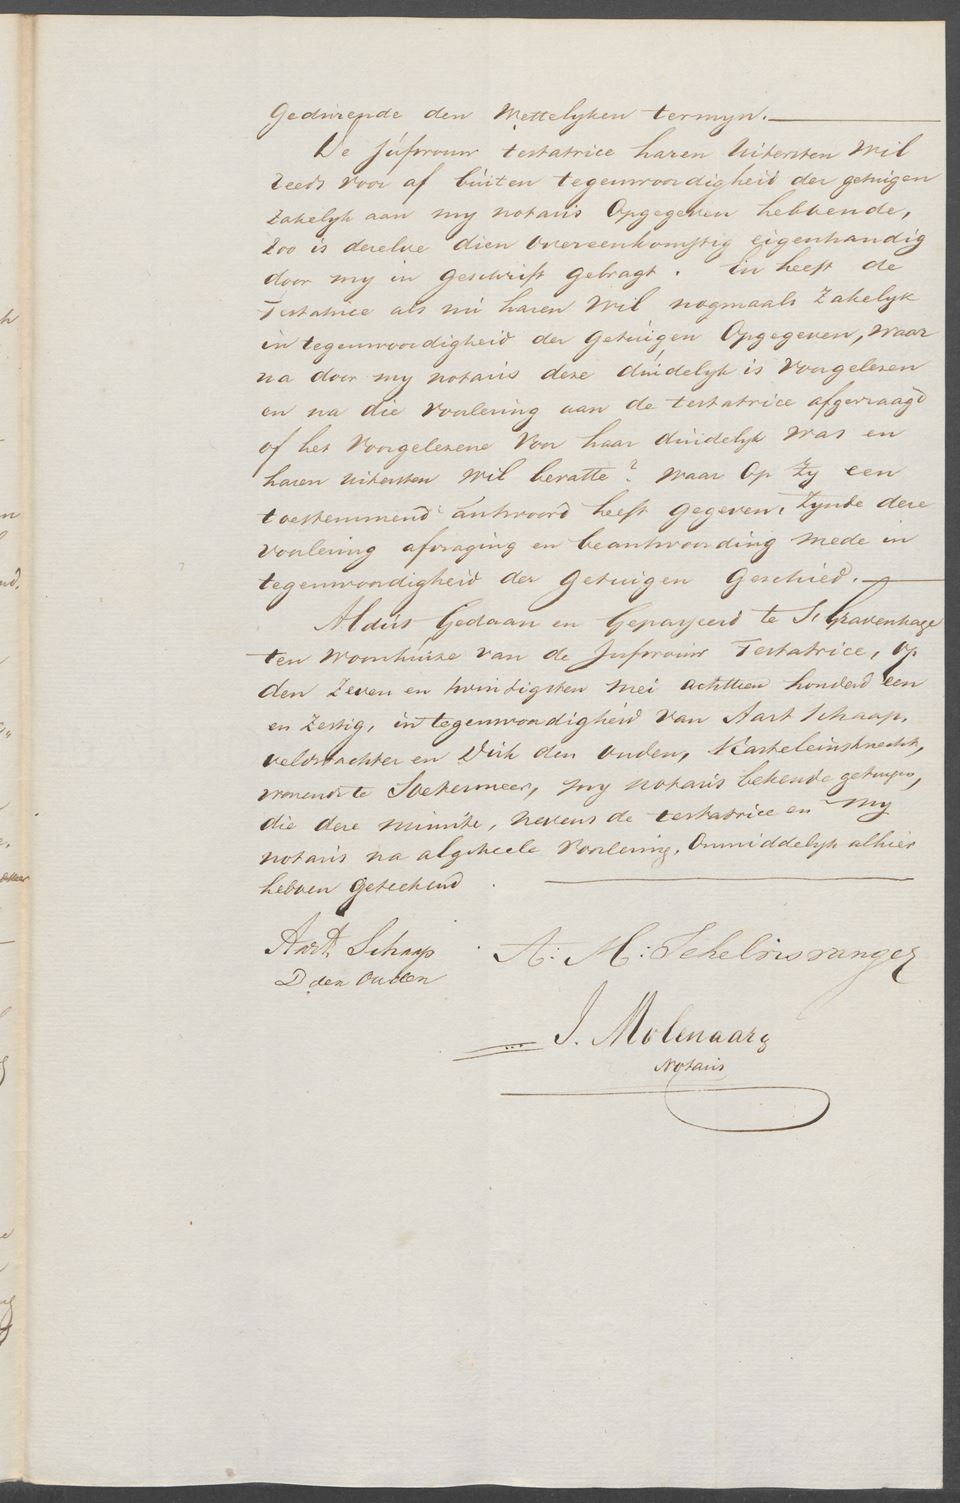 Gedurende den Wettelyken termyn.
De Jufvrouw testatrice haren Uitersten Wil
reeds voor af buiten tegenwoordigheid der getuigen
zakelyk aan my notaris Opgegeven hebbende,
zoo is dezelve dien Overeenkomstig eigenhandig
door my in geschrift gebragt. En heeft de
Testatrice als nu haren Wil nogmaals Zakelyk
in tegenwoordigheid der Getuigen Opgegeven, waar
na door my notaris deze duidelyk is Voorgelezen
en na die Voorlezing aan de testatrice afgevraagd
of het Voorgelezene Voor haar duidelyk was en
haren Uitersten Wil bevatte? Waar Op Zy een
toestemmend antwoord heeft gegeven, Zynde deze
voorlezing afvraging en beantwoording mede in
tegenwoordigheid der Getuigen Geschied.
Aldus Gedaan en Gepasseerd te S' Gravenhage
ten Woonhuize van de Jufvrouw Testatrice, Op
den Zeven en twintigsten Mei achttien honderd een
en Zestig, in tegenwoordigheid van Aart Schaap,
veldwachter en Dirk den Ouden, Kasteleinsknecht,
wonende te Soetermeer, my notaris bekende getuigen,
die deze minute, nevens de testatrice en my
notaris na algeheele Voorlezing, Onmiddelyk alhier
hebben Geteekend
Aart Schaap
A: M: Schelvisvanger
D den Ouden
J. Molenaar
Notaris